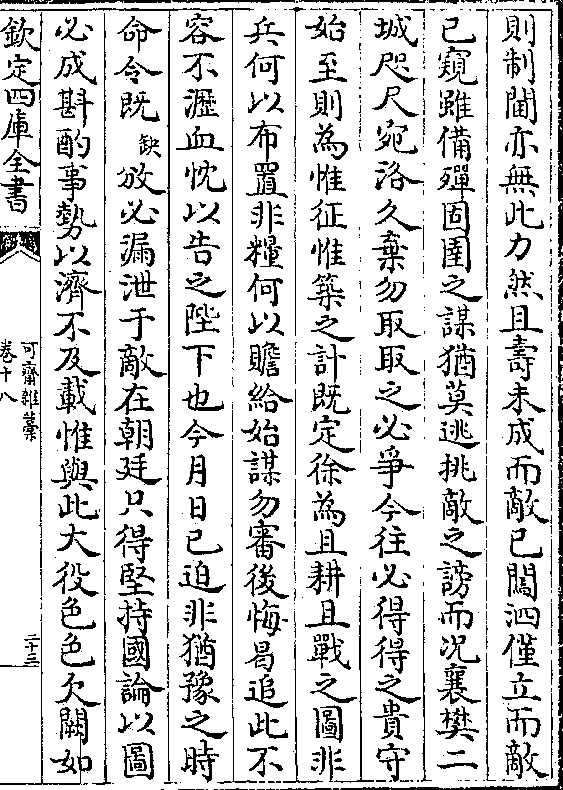 則制閫亦無此力然且壽未成而敵已闖泗僅立而敵
已窺雖備殫固圉之謀猶莫逃挑敵之謗而况襄樊二
城咫尺宛洛久棄勿取取之必爭今往必得得之貴守
始至則為惟征惟築之計既定徐為且耕且戰之圖非
兵何以布置非糧何以贍給始謀勿審後悔曷追此不
容不瀝血忱以告之陛下也今月日已迫非猶豫之時
命令既缺放必漏泄于敵在朝廷只得堅持國論以圖
必成斟酌事勢以濟不及載惟與此大役色色欠闕如
欽定四庫全書
可齋雜藁
卷十八
二十三